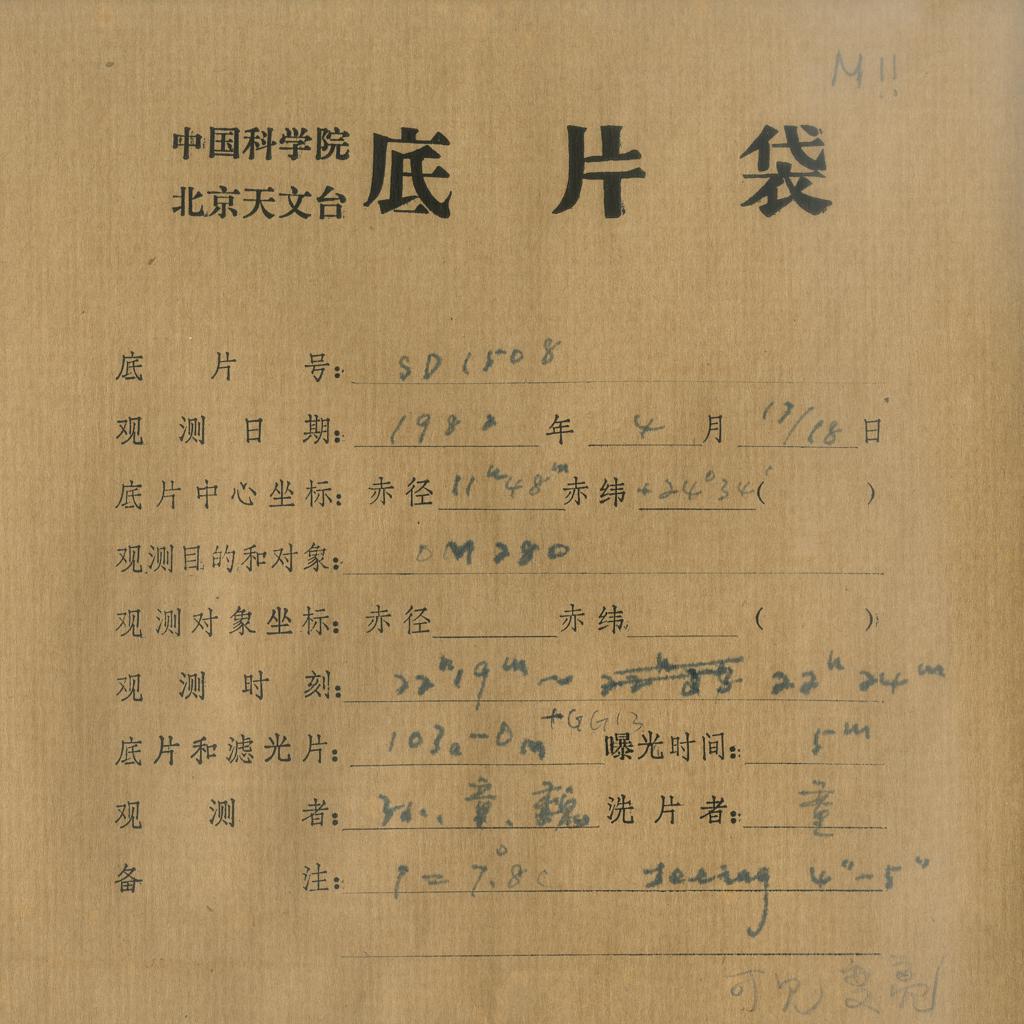 M!!
中国科学院
北京天文台 底片袋
底片号: SD1508
观测日期: 1982年4月17/18日
底片中心坐标: 赤径11ʰ48ᵐ赤纬+24°34′( )
观测目的和对象: OM280
观测对象坐标: 赤径 赤纬 ( )
观测时刻: 22ʰ19ᵐ~ 22ʰ24ᵐ
底片和滤光片: 103a-Dm +GG13 曝光时间: 5ᵐ
观测者: 孙、童、魏 洗片者: 童
备注: 7°.8C seeing 4"-5"
可见变亮